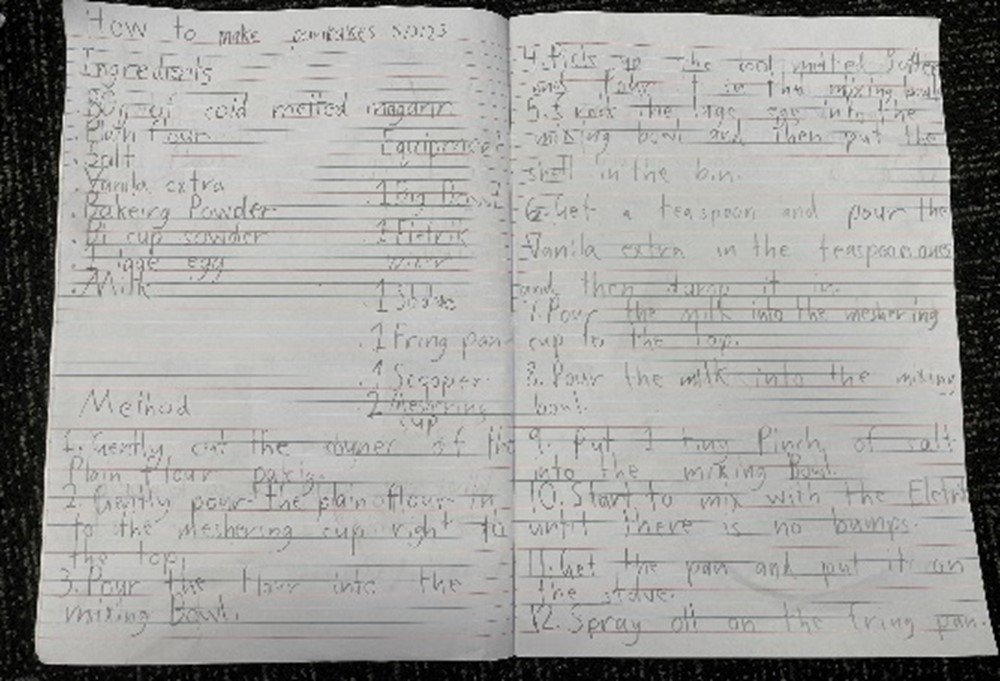 How to make pancakes
Ingredients
of cold melted
Plain flour
Salt
Vanila extra
Bakeing Powder
cup sowder
1 lage egg
Milk
1 Big Bowl
1 Eletrik
1 Stove
1 Fring pan
1 Scopper
2 Meshering
cup
Method
1. Gently cut the of the
Plain flour
2. Gently pour the plain flour in
to the meshering cup right to
the top.
3. Pour the flour into the
mixing Bowl.
4. the cool melted
and it in the mixing bowl
5. the lage egg into the
mixing bowl and then put the
shell in the bin.
6. Get a teaspoon and pour the
Vanila extra in the teaspoon
and then dump it in.
7. Pour the milk into the meshering
cup to the top.
8. Pour the milk into the mixing
bowl.
9. Put 1 tiny Pinch of salt
into the mixing Bowl.
10. Start to mix with the
until there is no bumps.
11. Get the pan and put it on
the stove.
12. Spray oli on the fring pan.